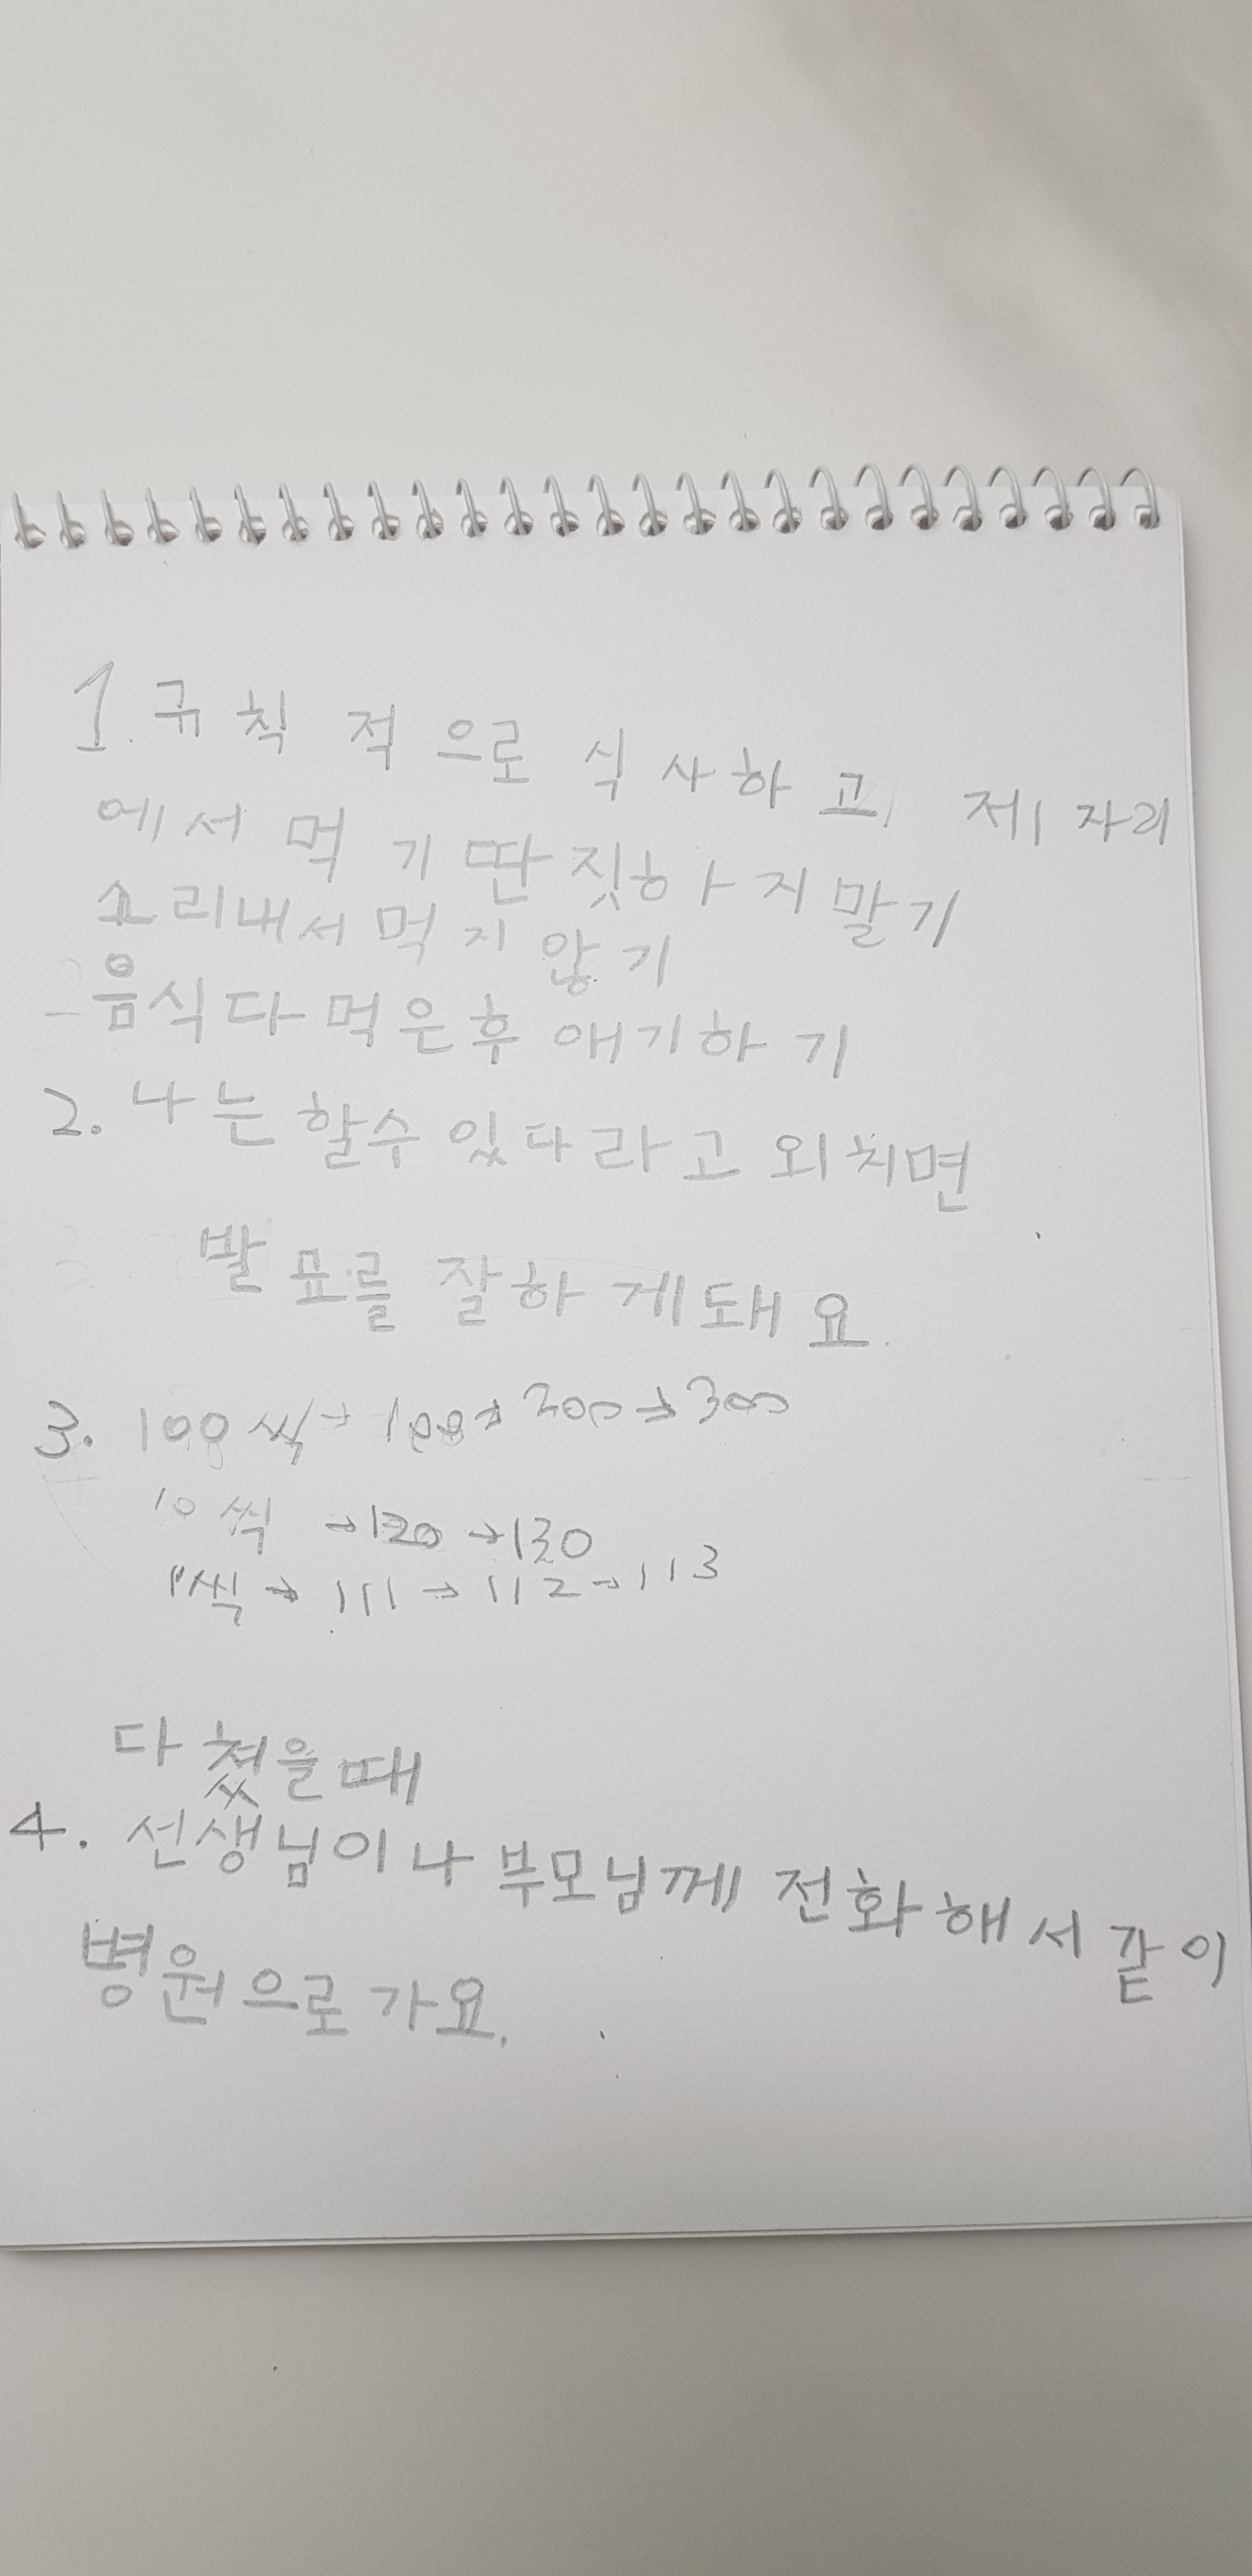 1. 규칙적으로 식사하고 제자리
에서 먹기 딴짓하지말기
소리내서 먹지 않기
음식다 먹은후 애기하기
2. 나는 할수 있다라고 외치면
발표를 잘하게돼요.
3. 100씩→100→200→300
10씩 →120→130
1씩→111→112→113
다쳤을때
4. 선생님이나 부모님께 전화해서 같이
병원으로가요.